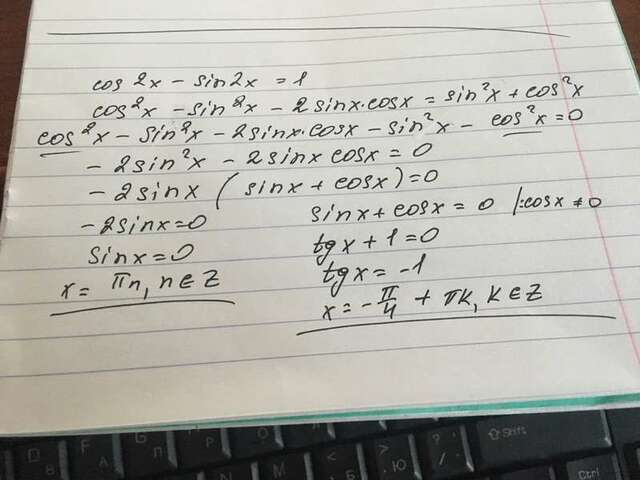 cos 2x - sin 2x = 1
cos²x - sin²x - 2sinx·cosx = sin²x + cos²x
cos²x - sin²x - 2sinx·cosx - sin²x - cos²x = 0
- 2sin²x - 2sinx cosx = 0
- 2sinx (sinx + cosx) = 0
-2sinx = 0
sinx = 0
x = πn, n ∈ Z
sinx + cosx = 0 |:cosx ≠ 0
tgx + 1 = 0
tgx = -1
x = -π/4 + πk, k ∈ Z
Shift
Ctrl